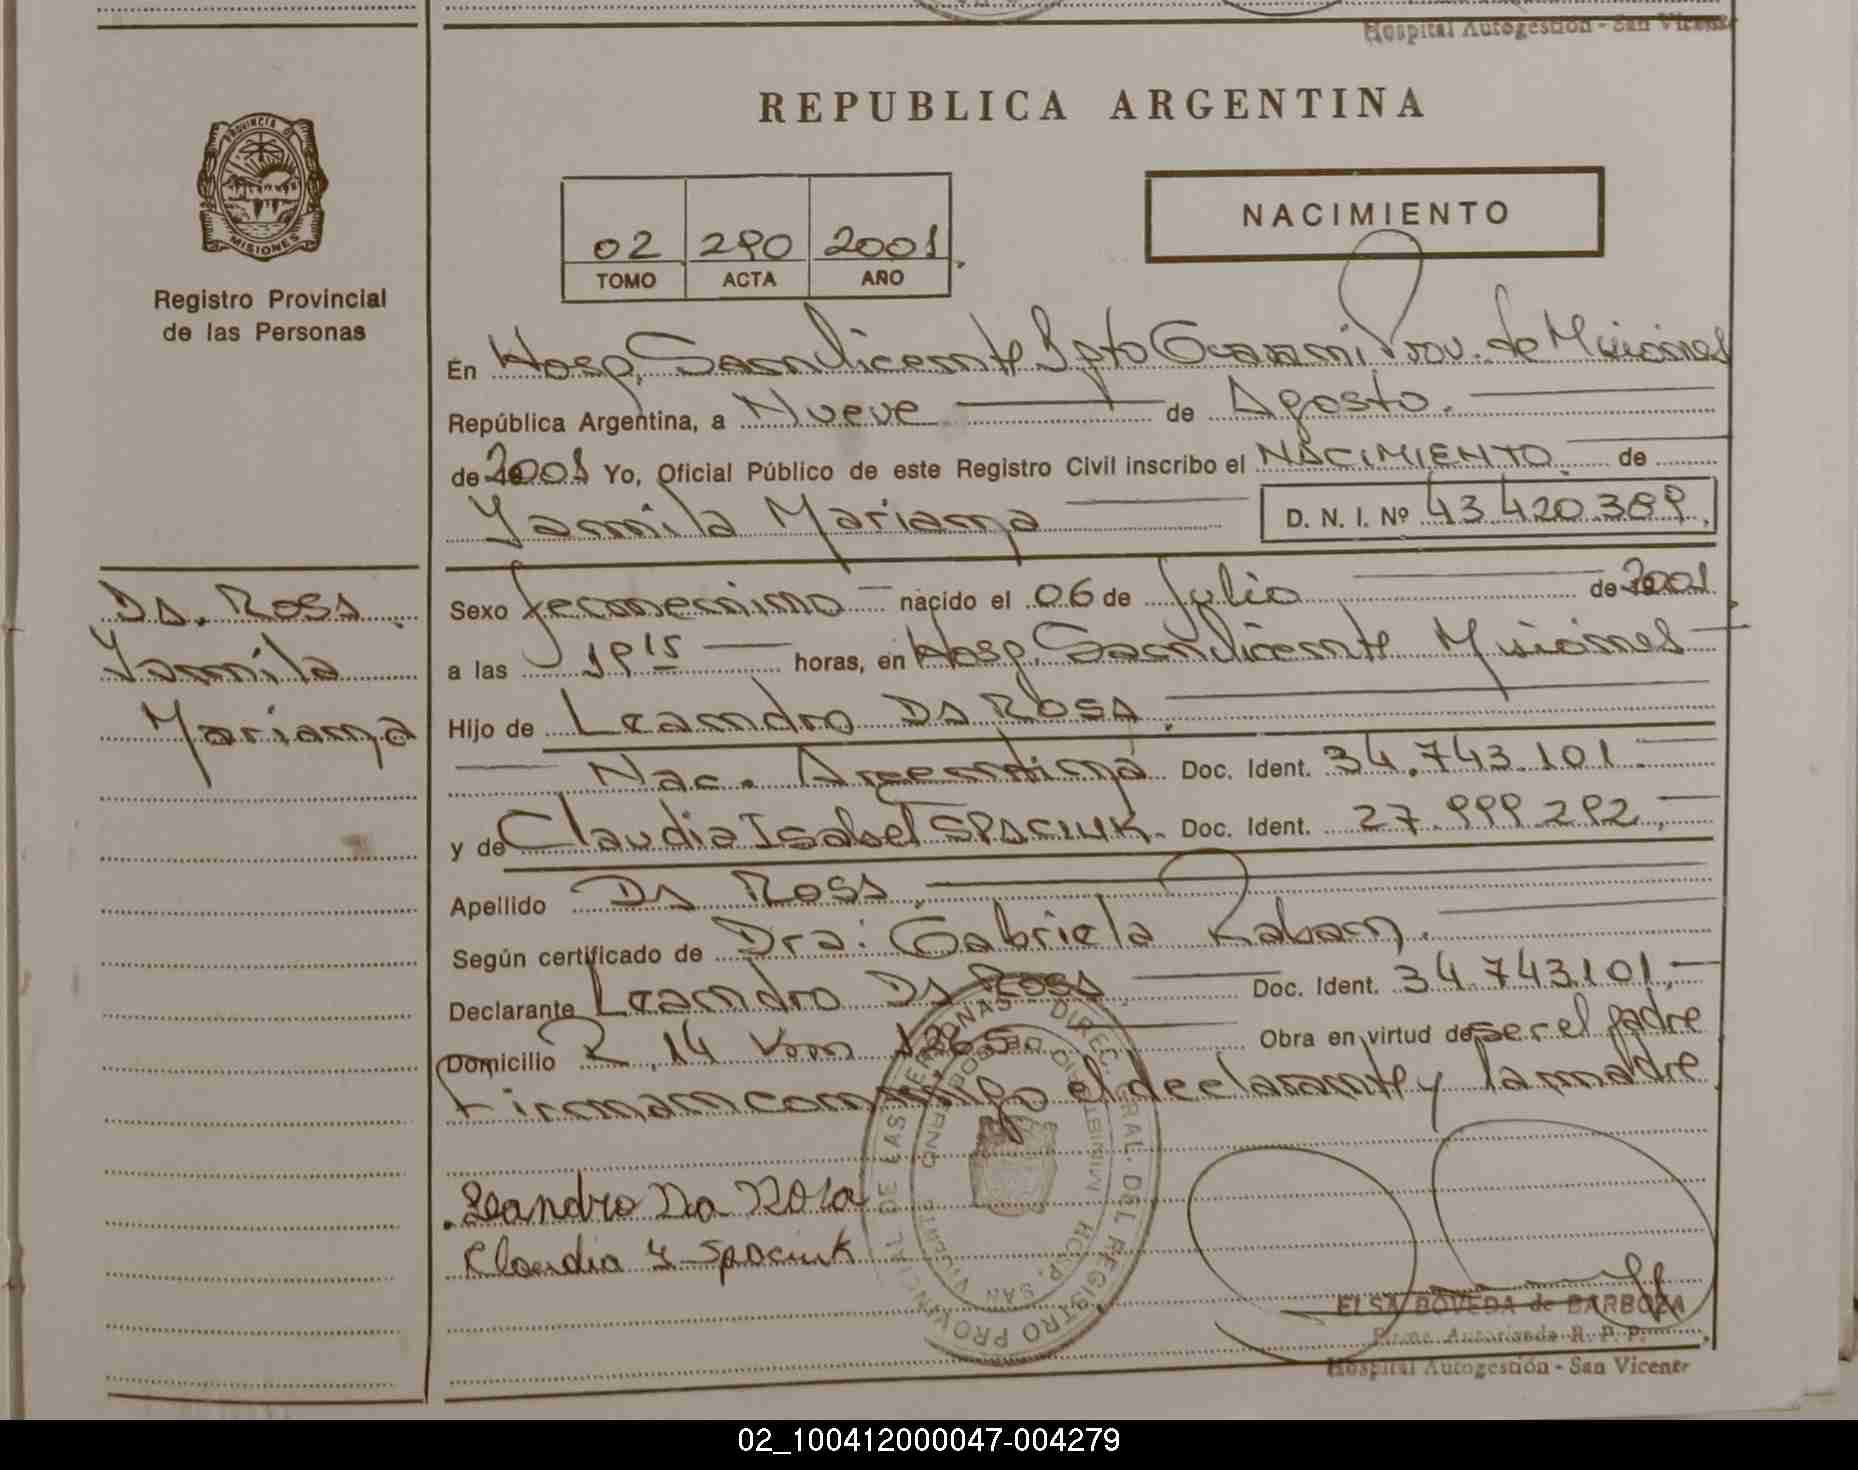 Hospital Autogestión - San Vicente
REPUBLICA ARGENTINA
PROVINCIA DE
MISIONES
Registro Provincial
de las Personas
02 290 2001
TOMO ACTA AÑO
NACIMIENTO
En Hosp. San Vicente Dpto Guarani Prov. de Misiones
República Argentina, a Nueve de Agosto.
de 2001 Yo, Oficial Público de este Registro Civil inscribo el NACIMIENTO. de
Yamila Mariana D. N. I. Nº 43.420.389.
Da. Rosa
Yamila
Mariana
Sexo femenino nacido el 06 de Julio de 2001.
a las 19 15 horas, en Hosp. San Vicente Misiones
Hijo de Leandro Da Rosa.
Nac. Argentina Doc. Ident. 34.743.101.
y de Claudia Isabel SPACIUK. Doc. Ident. 27.999.292,
Apellido Da Rosa.
Según certificado de Dra: Gabriela Kaban.
Declarante Leandro Da Rosa Doc. Ident. 34.743.101,
Domicilio R. 14 Km 1265 Obra en virtud de ser el padre
Firman conmigo el declarante y la madre.
Leandro Da Rosa
Claudia Y Spaciuk
DIREC. GRAL. DEL REGISTRO PROVINCIAL DE LAS PERSONAS
MINISTERIO DE GOBIERNO
HOSP. SAN VICENTE
ELSA BOVEDA de BARBOZA
Firma Autorizada R. P. P.
Hospital Autogestión - San Vicente
02_100412000047-004279